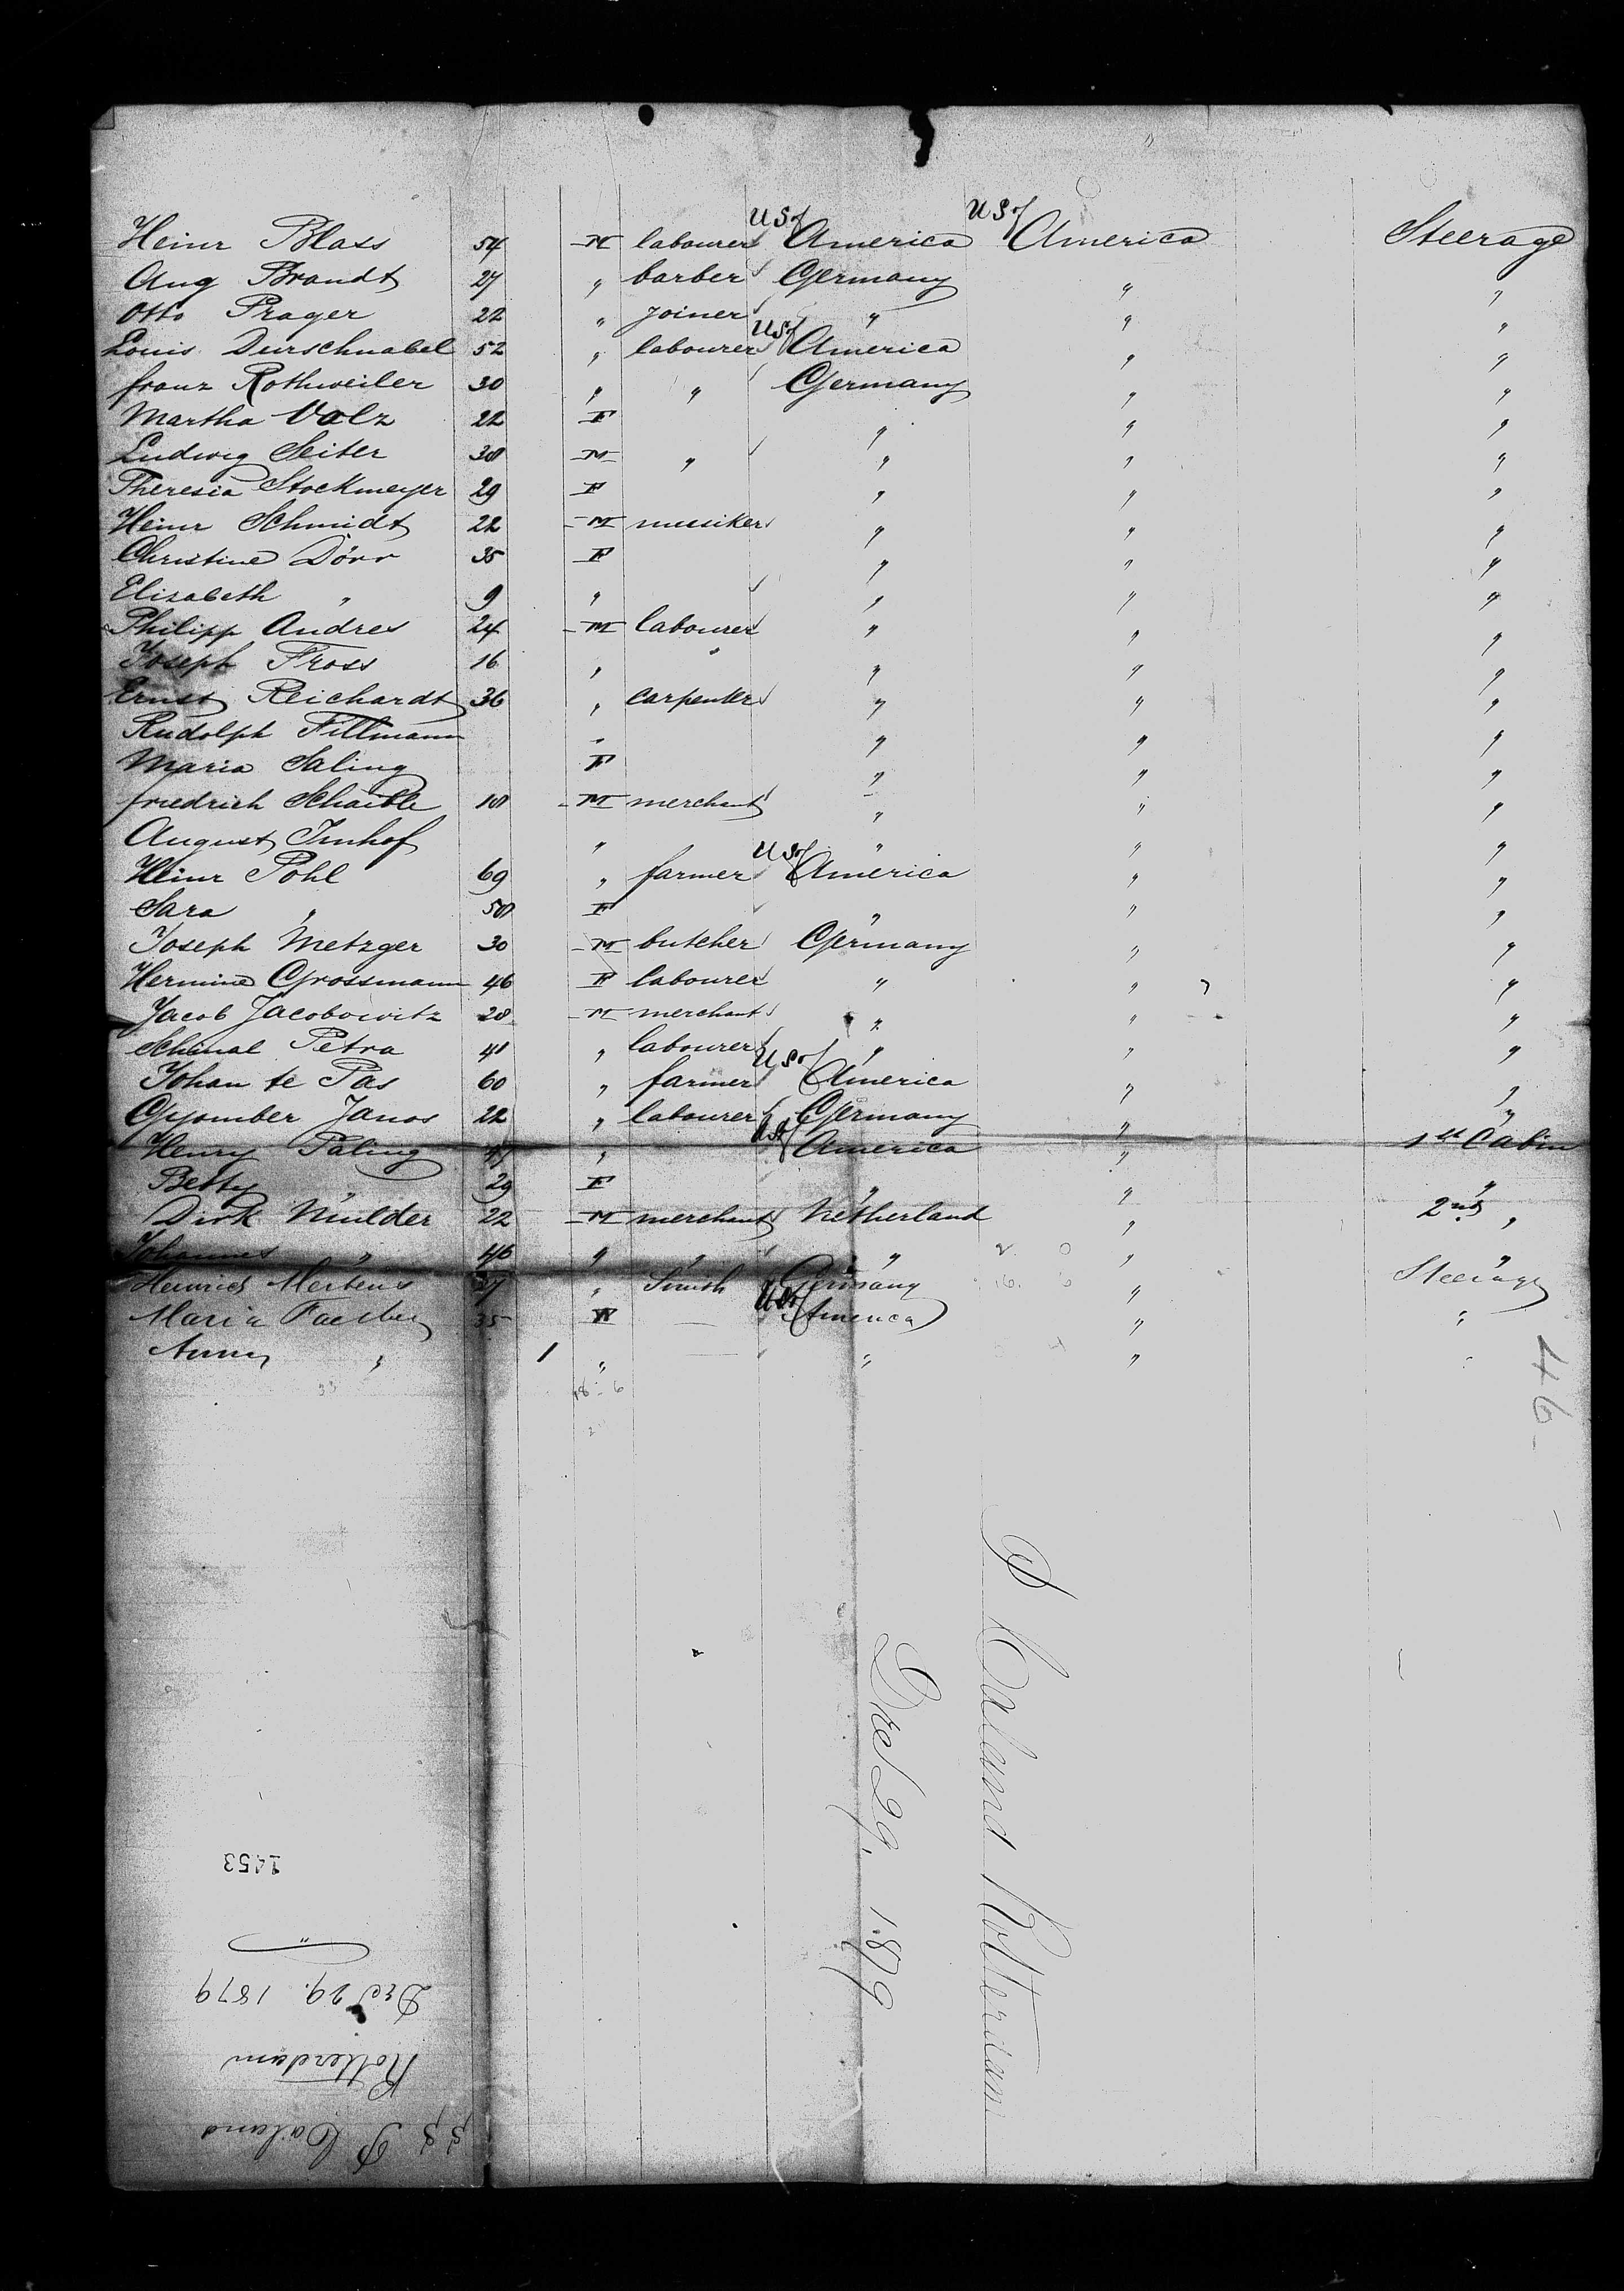 Heinr Blass 54 M labourer U S of America U S of America Steerage
Aug Brandt 27 " barber Germany " "
Otto Prager 22 " joiner " " "
Louis Durschnabel 52 " labourer U S of America " "
franz Rothweiler 30 " " Germany " "
Martha Volz 22 F " " "
Ludwig Seiter 38 M " " " "
Theresia Stockmeyer 29 F " " "
Heinr Schmidt 22 M musiker " " "
Christine Dörr 35 F " " "
Elisabeth " 9 " " " "
Philipp Andres 24 M labourer " " "
Joseph Fross 16 " " " " "
Ernst Reichardt 36 " carpenter " " "
Rudolph Fillmann " " " "
Maria Saling F " " "
friedrich Schaible 18 M merchant " " "
August Imhof " " " "
Heinr Pohl 69 " farmer U S of America " "
Sara " 58 F " " "
Joseph Metzger 30 M butcher Germany " "
Hermine Grossmann 46 F labourer " " "
Jacob Jacobowitz 28 M merchant " " "
Petra 41 " labourer " " "
Johan te Pas 60 " farmer U S of America " "
Gyomber Janos 22 " labourer Germany " "
Henry Paling " U S of America " 1st Cabin
Betty " 29 F " " "
Dirk Mulder 22 M merchant Netherland " 2nd "
Johannes " 46 " " " " "
Heinrich Mertens 27 " Smith Germany " Steerage
Maria 35 F — U S of America " "
Anna " 1 " — " " "
33 18 - 6
2
46
P Caland Rotterdam
Dec 29. 1879
1453
Dec 29. 1879
Rotterdam
S.S. P Caland